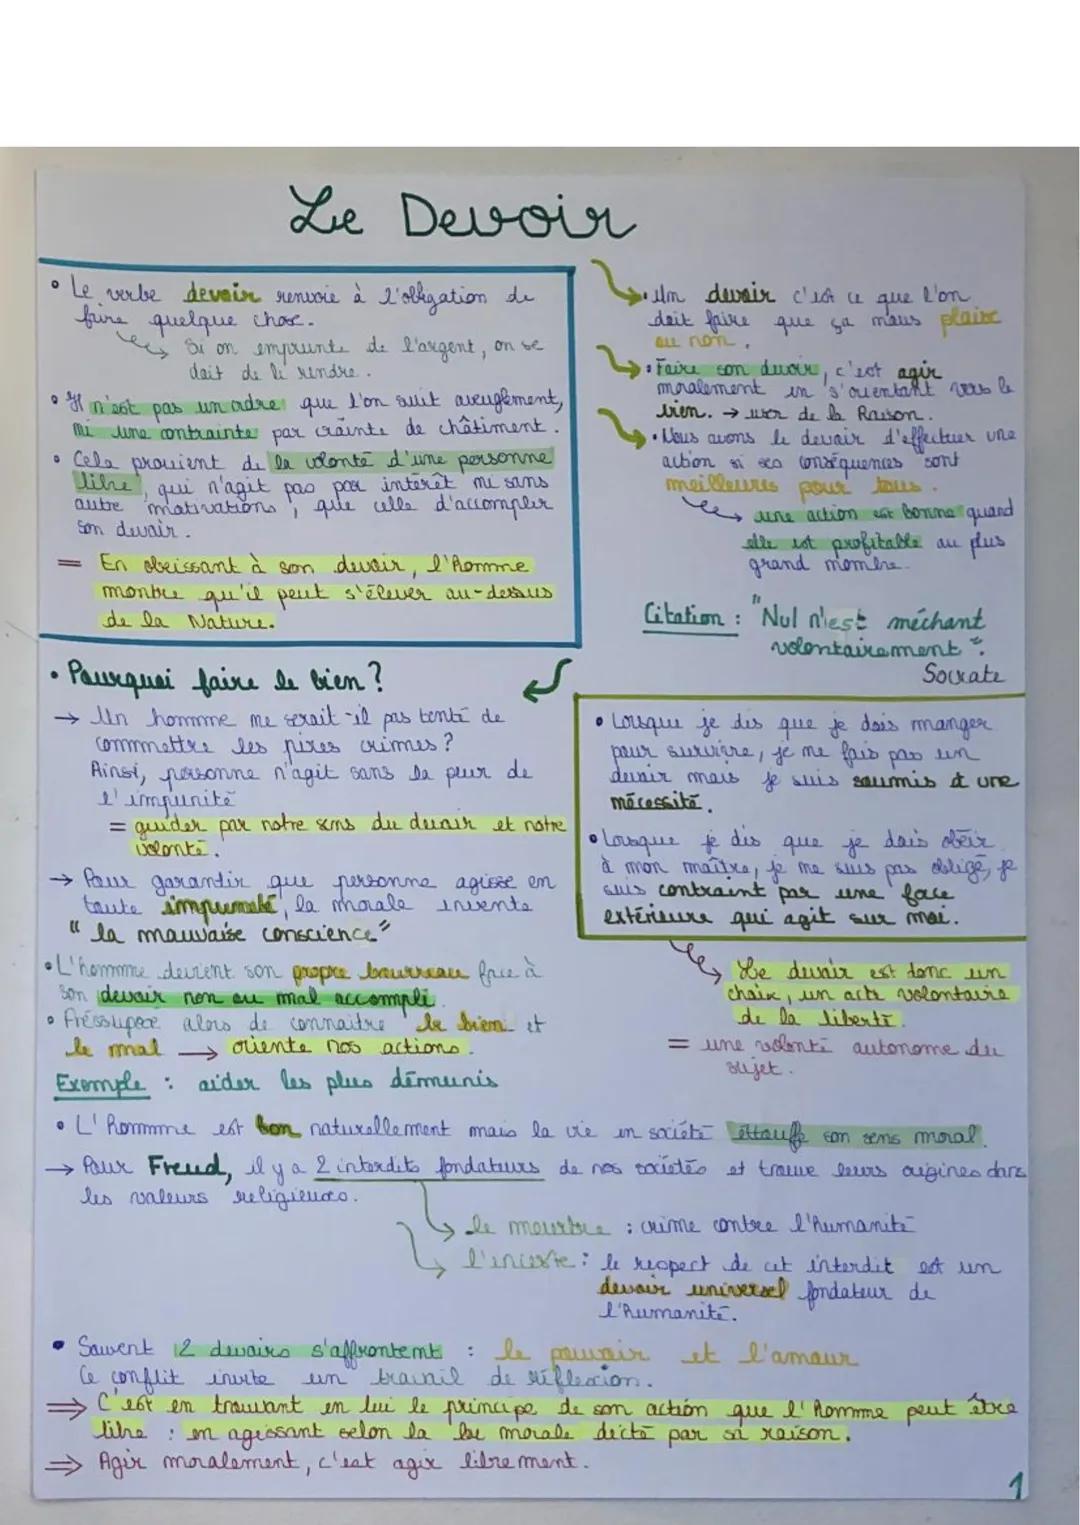 Le Devoir
• Le verbe devoir renvoie à l'obligation de
faire quelque chose.
Si on emprunte de l'argent, on se
doit de le rendre.
• Il n'est pas un ordre que l'on suit aveuglément,
ni une contrainte par crainte de châtiment.
• Cela provient de la volonté d'une personne
libre, qui n'agit pas par intérêt ni sans
autre motivations, que celle d'accomplir
son devoir.
= En obeissant à son devoir, l'Homme
montre qu'il peut s'élever au-dessus
de la Nature.
• Un devoir c'est ce que l'on
doit faire que ça nous plaise
ou non.
• Faire son devoir, c'est agir
moralement en s'orientant vers le
bien. → user de la Raison.
• Nous avons le devoir d'effectuer une
action si ses conséquences sont
meilleures pour tous.
une action est bonne quand
elle est profitable au plus
grand nombre.
Citation : "Nul n'est méchant
volontairement".
Socrate
• Pourquoi faire le bien ?
→ Un homme ne serait-il pas tenté de
commmettre les pires crimes ?
Ainsi, personne n'agit sans la peur de
l'impunité
= guider par notre sens du devoir et notre
volonté.
→ Pour garantir que personne agisse en
toute impunité, la morale invente
"la mauvaise conscience"
• L'homme devient son propre bourreau face à
son devoir non ou mal accompli.
• Préssupose alors de connaitre le bien et
le mal → oriente nos actions.
Exemple : aider les plus démunis
• Lorsque je dis que je dois manger
pour survivre, je ne fais pas un
devoir mais je suis soumis à une
nécessité.
• Lorsque je dis que je dois obéir
à mon maître, je ne suis pas obligé, je
suis contraint par une force
extérieure qui agit sur moi.
Le devoir est donc un
choix, un acte volontaire
de la liberté.
= une volonté autonome du
sujet.
• L'Homme est bon naturellement mais la vie en société étouffe son sens moral.
→ Pour Freud, il y a 2 interdits fondateurs de nos sociétés et trouve leurs origines dans
les valeurs religieuses.
le meurtre : crime contre l'Humanité
l'inceste : le respect de cet interdit est un
devoir universel fondateur de
l'Humanité.
• Souvent 2 devoirs s'affrontent : le pouvoir et l'amour
Ce conflit invite un travail de réflexion.
⇒ C'est en trouvant en lui le principe de son action que l'Homme peut être
libre : en agissant selon la loi morale dicté par sa raison.
⇒ Agir moralement, c'est agir librement.
1